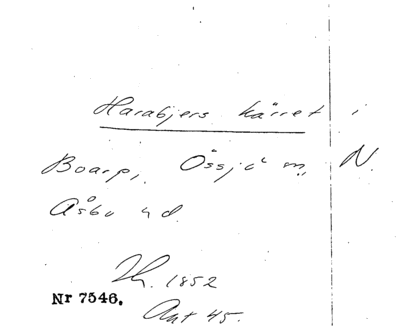 Harabjers kärret i
Boarp, Össjö sn, N.
Åsbo hd.
Th. 1852
Nr 7546.
Ant 45.